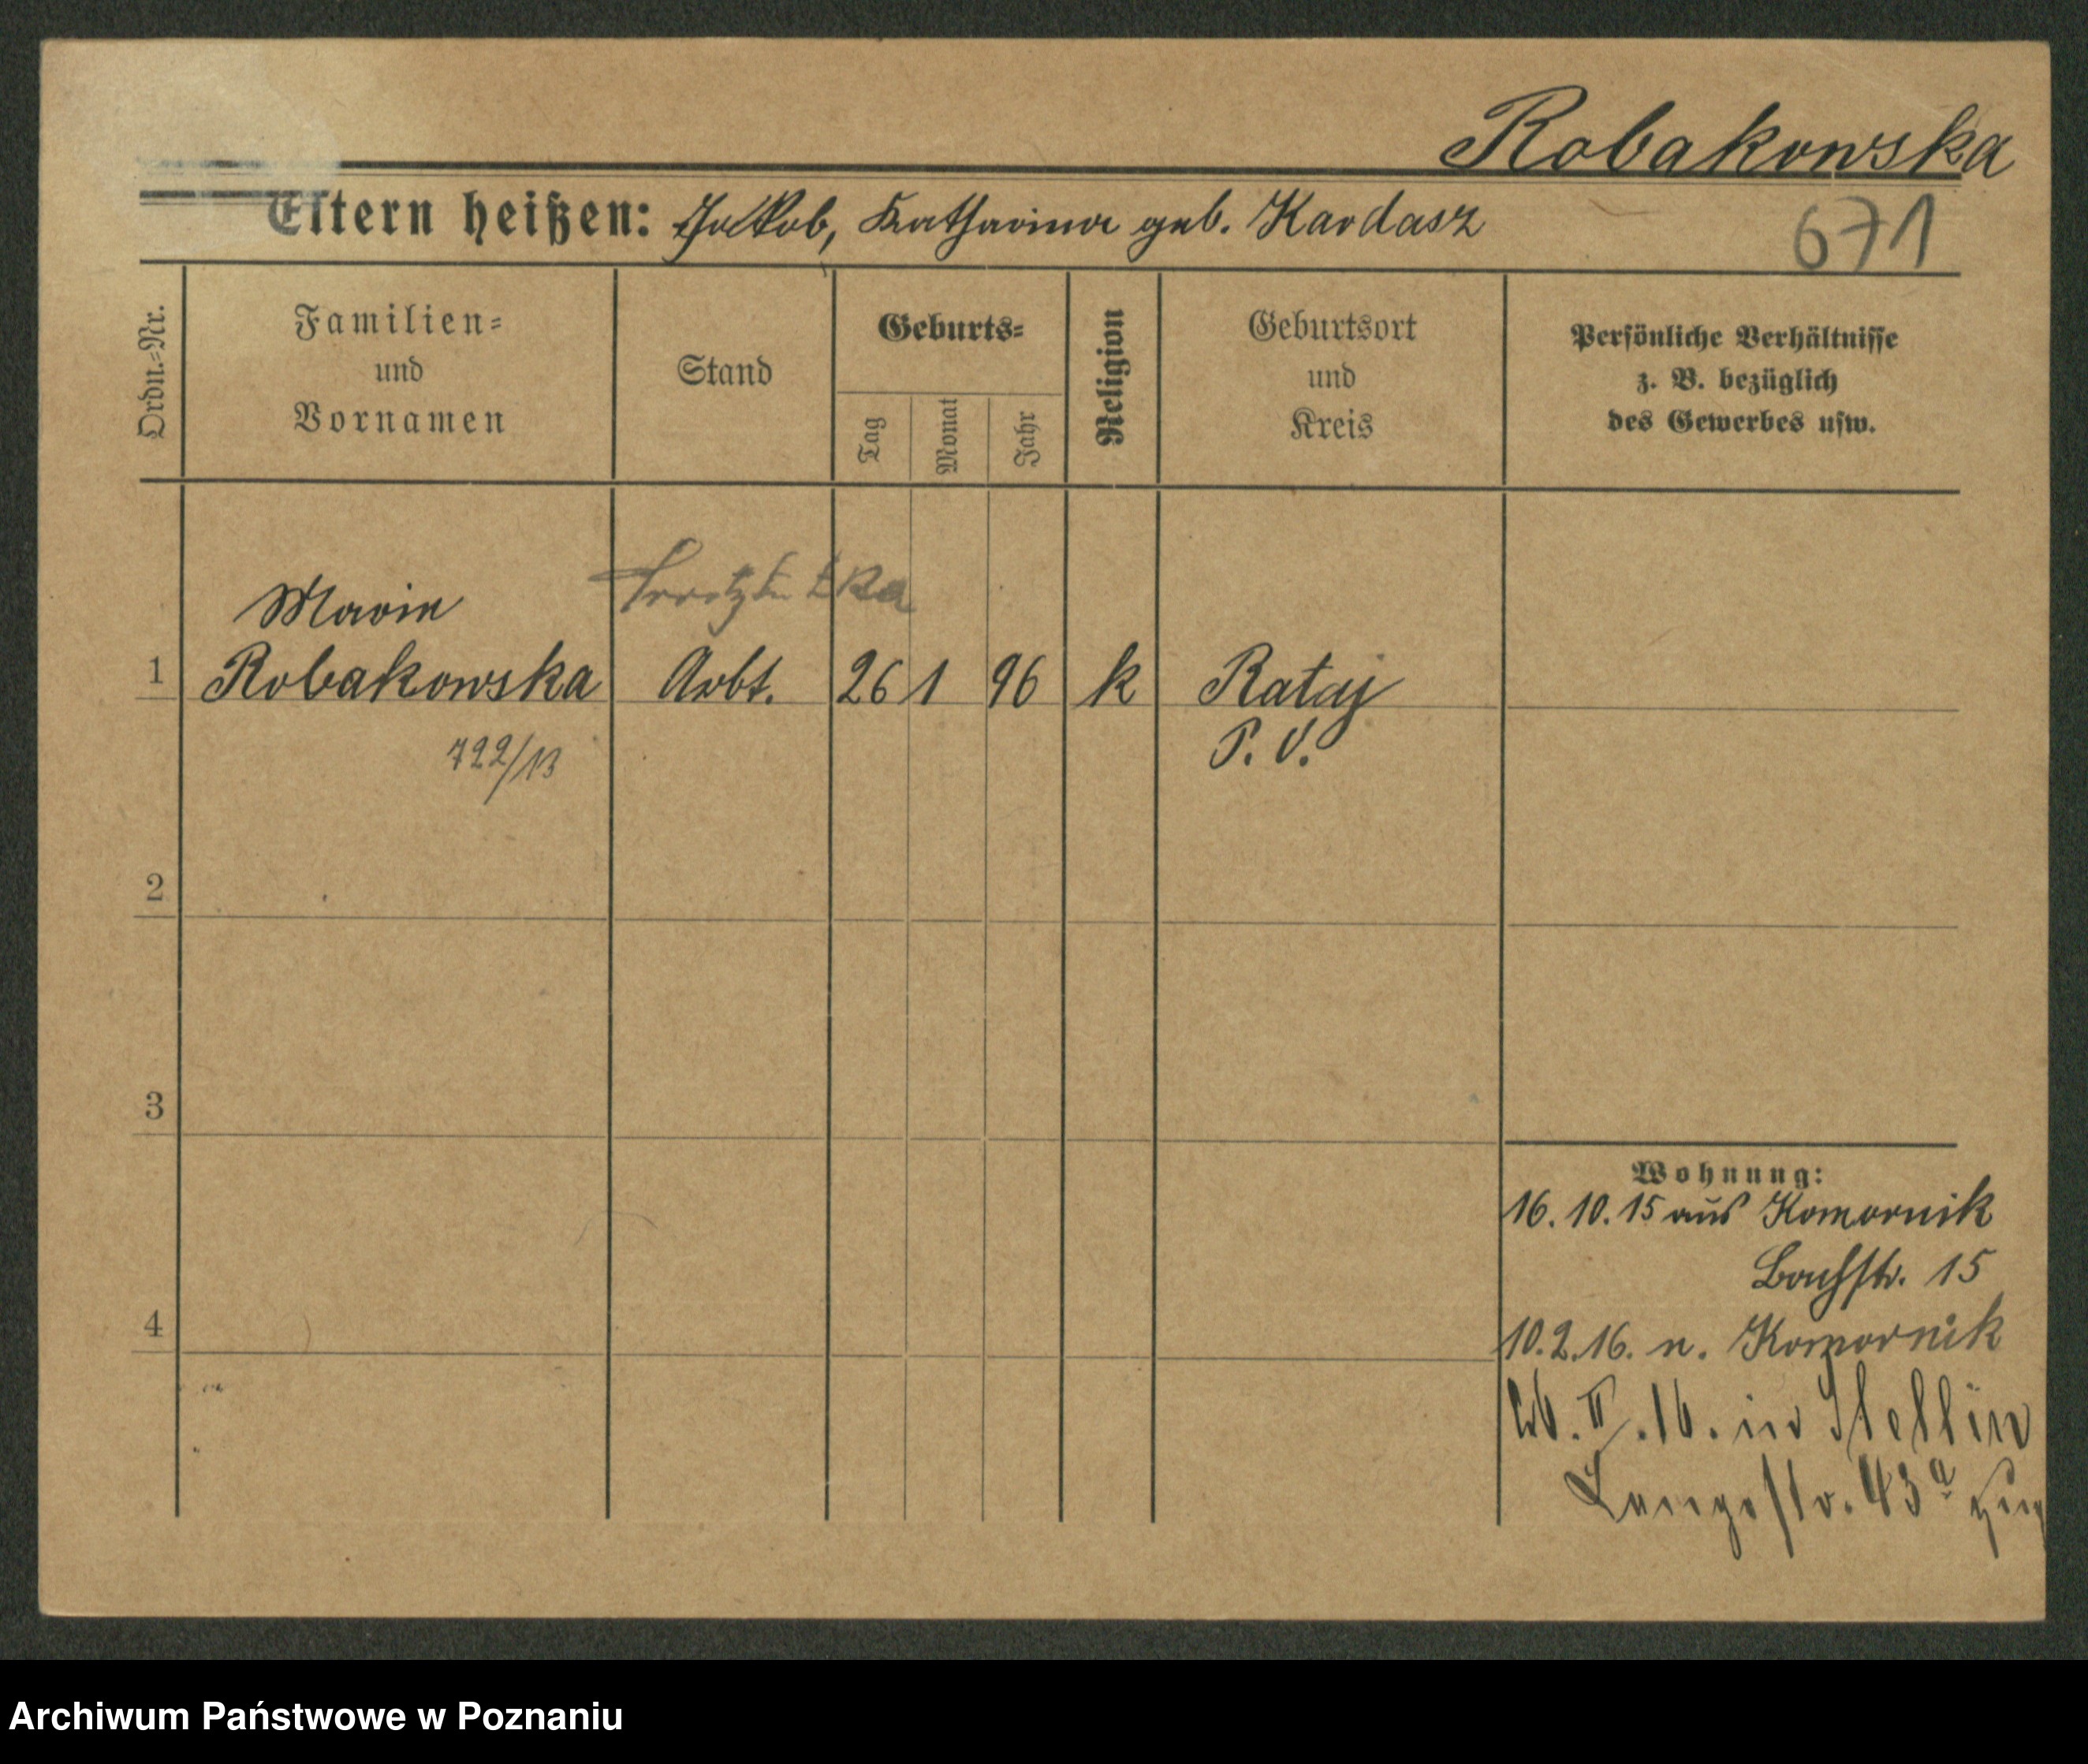 Robakowska
Eltern heißen: Jakob, Katharina geb. Kardasz
671
Ordn.-Nr.
Familien-
und
Vornamen
Stand
Geburts-
Tag
Monat
Jahr
Religion
Geburtsort
und
Kreis
Persönliche Verhältnisse
z. B. bezüglich
des Gewerbes usw.
Marie
1 Robakowska Arbt. 26 1 96 k Rataj
P. V.
722/13
2
3
4
Wohnung:
16. 10. 15 aus Komornik
Bachstr. 15
10. 2. 16. n. Komornik
II. 16. in Stettin
Langestr. 43a
Archiwum Państwowe w Poznaniu